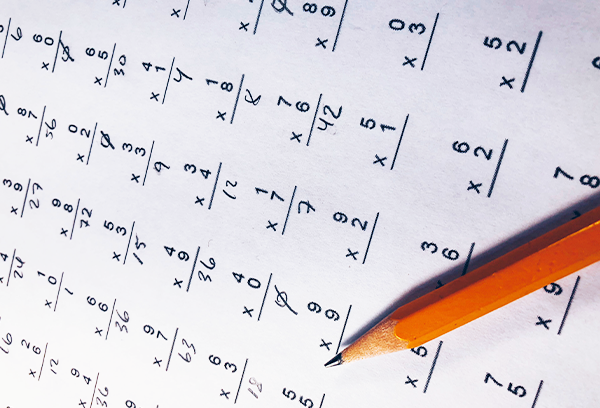 3 8 6
x 9 x 7 x 0
24 27 56 0
2 1 9 0 6
x 6 x 0 x 8 x 2 x 5
12 1 72 0 30
9 6 5 3 4
x 4 x 6 x 3 x 3 x 1
36 36 15 9 4
9 4 3 1
x 7 x 9 x 4 x 8
63 36 12 8 0
6 4 1 7 8
x 3 x 0 x 7 x 6 x 9
18 0 7 42
5 9 9 5 0
5 x 9 x 2 x 1 x 3
3 6 5
x 5 6 x 2 x 2
7 7
5 x 9 8